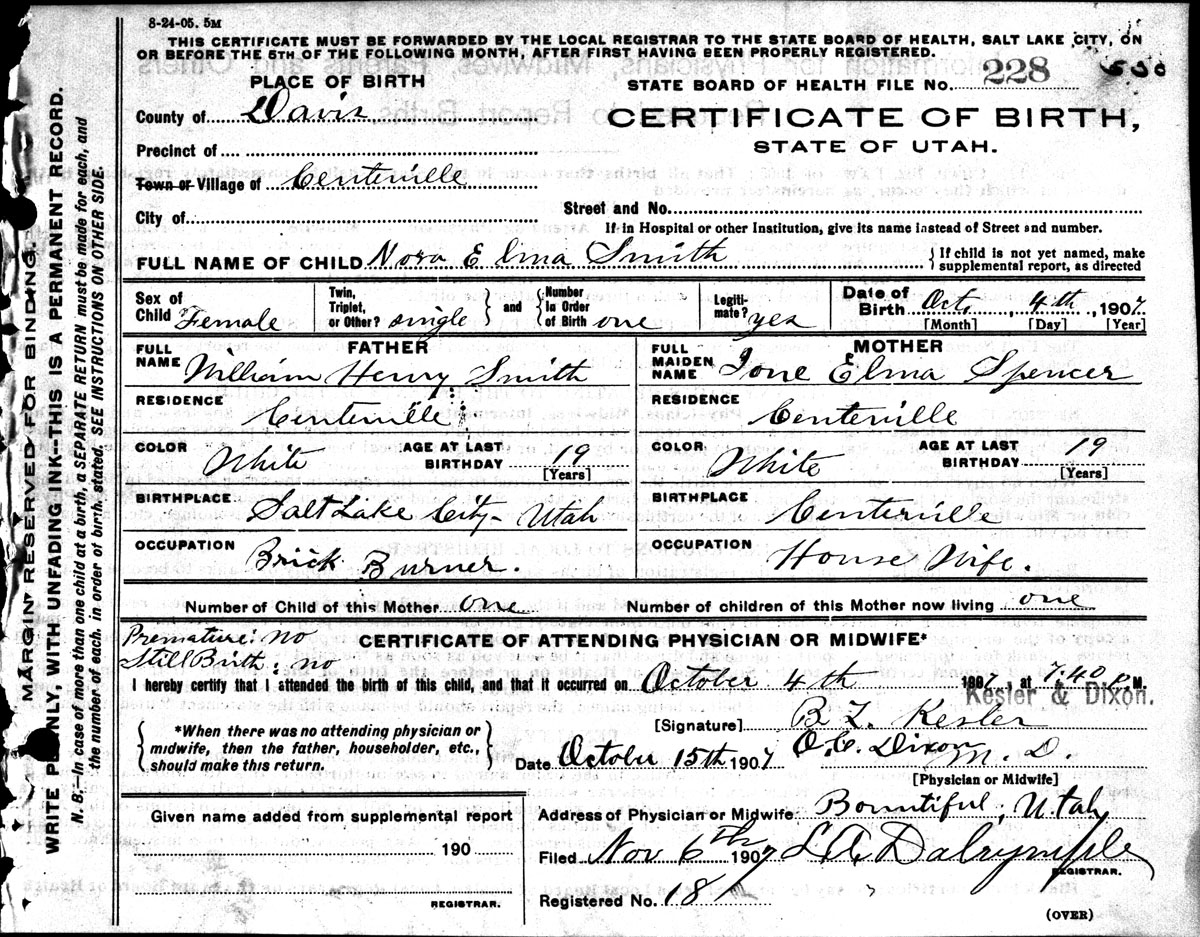 8-24-05. 5M
THIS CERTIFICATE MUST BE FORWARDED BY THE LOCAL REGISTRAR TO THE STATE BOARD OF HEALTH, SALT LAKE CITY, ON
OR BEFORE THE 5TH OF THE FOLLOWING MONTH, AFTER FIRST HAVING BEEN PROPERLY REGISTERED.
PLACE OF BIRTH
STATE BOARD OF HEALTH FILE NO. 228
County of Davis
CERTIFICATE OF BIRTH,
STATE OF UTAH.
Precinct of
Town or Village of Centerville
City of
Street and No.
If in Hospital or other Institution, give its name instead of Street and number.
FULL NAME OF CHILD Nora Elma Smith { If child is not yet named, make
supplemental report, as directed
Sex of Child Female
Twin, Triplet, or Other? single } and { Number In Order of Birth one
Legitimate? yes
Date of Birth Oct. 4th, 1907
[Month] [Day] [Year]
FATHER
FULL NAME William Henry Smith
RESIDENCE Centerville
COLOR White AGE AT LAST BIRTHDAY 19
[Years]
BIRTHPLACE Salt Lake City - Utah
OCCUPATION Brick Burner.
MOTHER
FULL MAIDEN NAME Ione Elma Spencer
RESIDENCE Centerville
COLOR White AGE AT LAST BIRTHDAY 19
[Years]
BIRTHPLACE Centerville
OCCUPATION House Wife.
Number of Child of this Mother one Number of children of this Mother now living one
Premature: no
Still Birth: no
CERTIFICATE OF ATTENDING PHYSICIAN OR MIDWIFE*
I hereby certify that I attended the birth of this child, and that it occurred on October 4th 1907, at 7:40 P. M.
Kesler & Dixon.
[Signature] B. L. Kesler
O. C. Dixon M. D.
{ *When there was no attending physician or
midwife, then the father, householder, etc.,
should make this return. }
Date October 15th 1907
[Physician or Midwife]
Given name added from supplemental report
190
REGISTRAR.
Address of Physician or Midwife Bountiful, Utah
Filed Nov 6th 1907 L. A. Dalrymple
REGISTRAR.
Registered No. 18
(OVER)
MARGIN RESERVED FOR BINDING.
WRITE PLAINLY, WITH UNFADING INK--THIS IS A PERMANENT RECORD.
N. B.—In case of more than one child at a birth, a SEPARATE RETURN must be made for each, and
the number of each, in order of birth, stated. SEE INSTRUCTIONS ON OTHER SIDE.